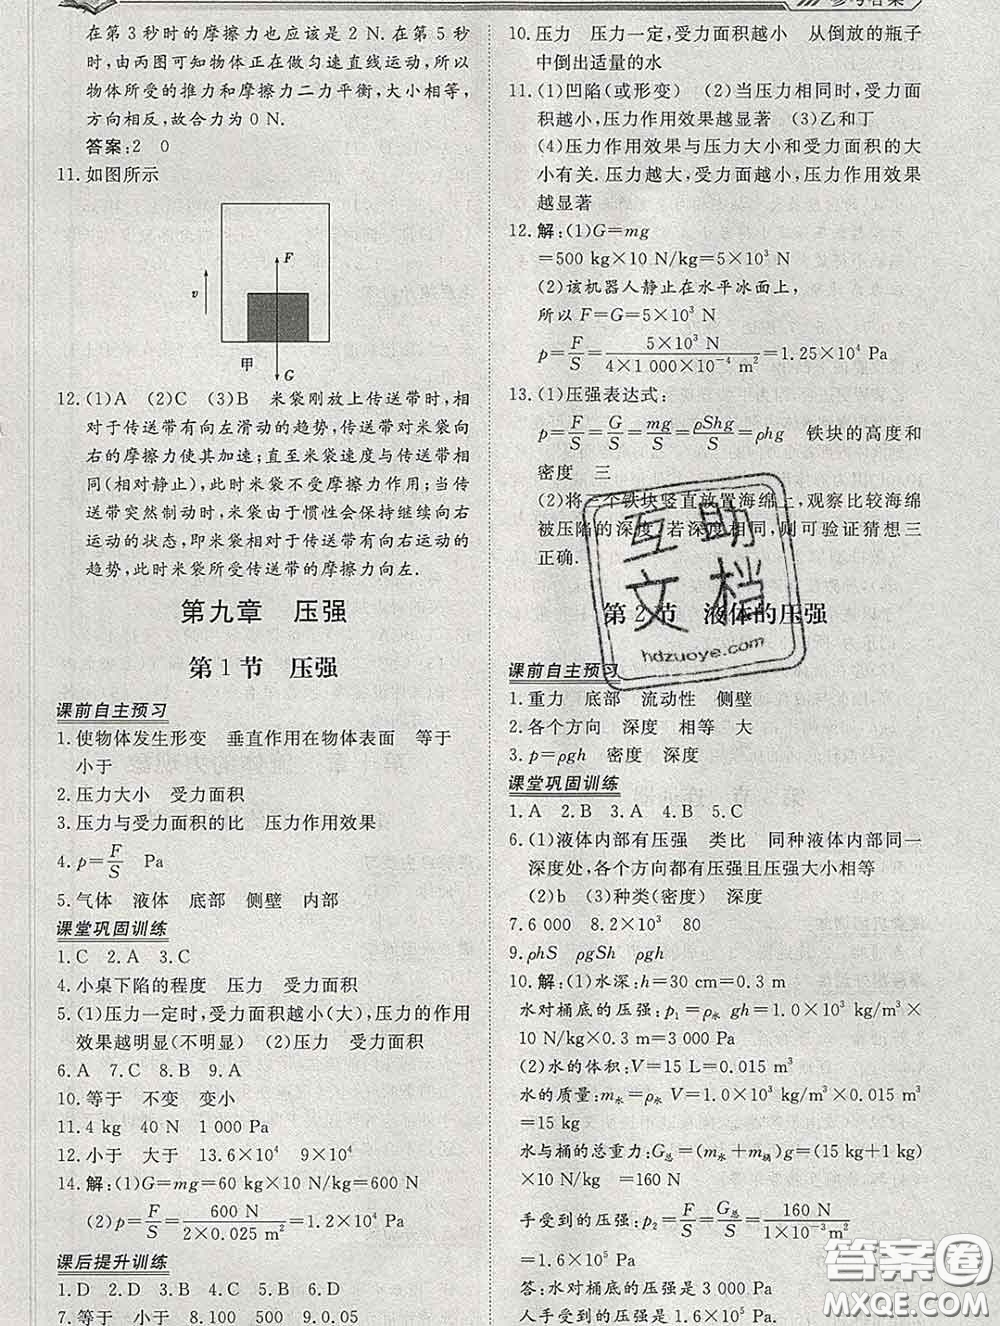 参考答案
在第 3 秒时的摩擦力也应该是 2 N. 在第 5 秒
时,由两图可知物体正在做匀速直线运动,所以
物体所受的推力和摩擦力二力平衡,大小相等,
方向相反,故合力为 0 N.
答案:2 0
11. 如图所示
F
v
甲
G
12. (1)A (2)C (3)B 米袋刚放上传送带时,相
对于传送带有向左滑动的趋势,传送带对米袋
向右的摩擦力使其加速;直至米袋速度与传送带相
同(相对静止),此时米袋不受摩擦力作用;当传
送带突然制动时,米袋由于惯性会保持继续向右
运动的状态,即米袋相对传送带有向右运动的
趋势,此时米袋所受传送带的摩擦力向左.
第九章 压强
第 1 节 压强
课前自主预习
1. 使物体发生形变 垂直作用在物体表面 等于
小于
2. 压力大小 受力面积
3. 压力与受力面积的比 压力作用效果
4. p=F/S Pa
5. 气体 液体 底部 侧壁 内部
课堂巩固训练
1. C 2. A 3. C
4. 小桌下陷的程度 压力 受力面积
5. (1)压力一定时,受力面积越小(大),压力的作用
效果越明显(不明显) (2)压力 受力面积
6. A 7. C 8. B 9. A
10. 等于 不变 变小
11. 4 kg 40 N 1 000 Pa
12. 小于 大于 13. 6×10⁴ 9×10⁴
14. 解:(1)G=mg=60 kg×10 N/kg=600 N
(2)p=F/S=600 N/(2×0.025 m²)=1.2×10⁴ Pa
课后提升训练
1. D 2. D 3. B 4. C 5. B 6. B
7. 等于 小于 8. 100 500 9. 0.05
10. 压力 压力一定,受力面积越小 从倒放的瓶子
中倒出适量的水
11. (1)凹陷(或形变) (2)当压力相同时,受力面
积越小,压力作用效果越显著 (3)乙和丁
(4)压力作用效果与压力大小和受力面积的大
小有关. 压力越大,受力面越小,压力作用效果
越显著
12. 解:(1)G=mg
=500 kg×10 N/kg=5×10³ N
(2)该机器人静止在水平冰面上,
所以 F=G=5×10³ N
p=F/S=5×10³ N/(4×1 000×10⁻⁴ m²)=1.25×10⁴ Pa
13. (1)压强表达式:
p=F/S=G/S=mg/S=ρShg/S=ρhg 铁块的高度和
密度 三
(2)将三个铁块竖直放置海绵上,观察比较海绵
被压陷的深度,若深度相同,则可验证猜想三
正确.
互助
文档
hdzuoye.com
第 2 节 液体的压强
课前自主预习
1. 重力 底部 流动性 侧壁
2. 各个方向 深度 相等 大
3. p=ρgh 密度 深度
课堂巩固训练
1. A 2. B 3. A 4. B 5. C
6. (1)液体内部有压强 类比 同种液体内部同一
深度处,各个方向都有压强且压强大小相等
(2)b (3)种类(密度) 深度
7. 6 000 8. 2×10³ 80
9. ρhS ρgSh ρgh
10. 解:(1)水深:h=30 cm=0.3 m
水对桶底的压强:p₁=ρ水 gh=1.0×10³ kg/m³×
10 N/kg×0.3 m=3 000 Pa
(2)水的体积:V=15 L=0.015 m³
水的质量:m水=ρ水 V=1.0×10³ kg/m³×0.015 m³
=15 kg
水与桶的总重力:G总=(m水+m桶)g=(15 kg+1 kg)
×10 N/kg =160 N
手受到的压强:p₂=F/S=G总/S=160 N/(1×10⁻³ m²)
=1.6×10⁵ Pa
答:水对桶底的压强是 3 000 Pa,
人手受到的压强是 1.6×10⁵ Pa.
答案圈
MXQE.COM